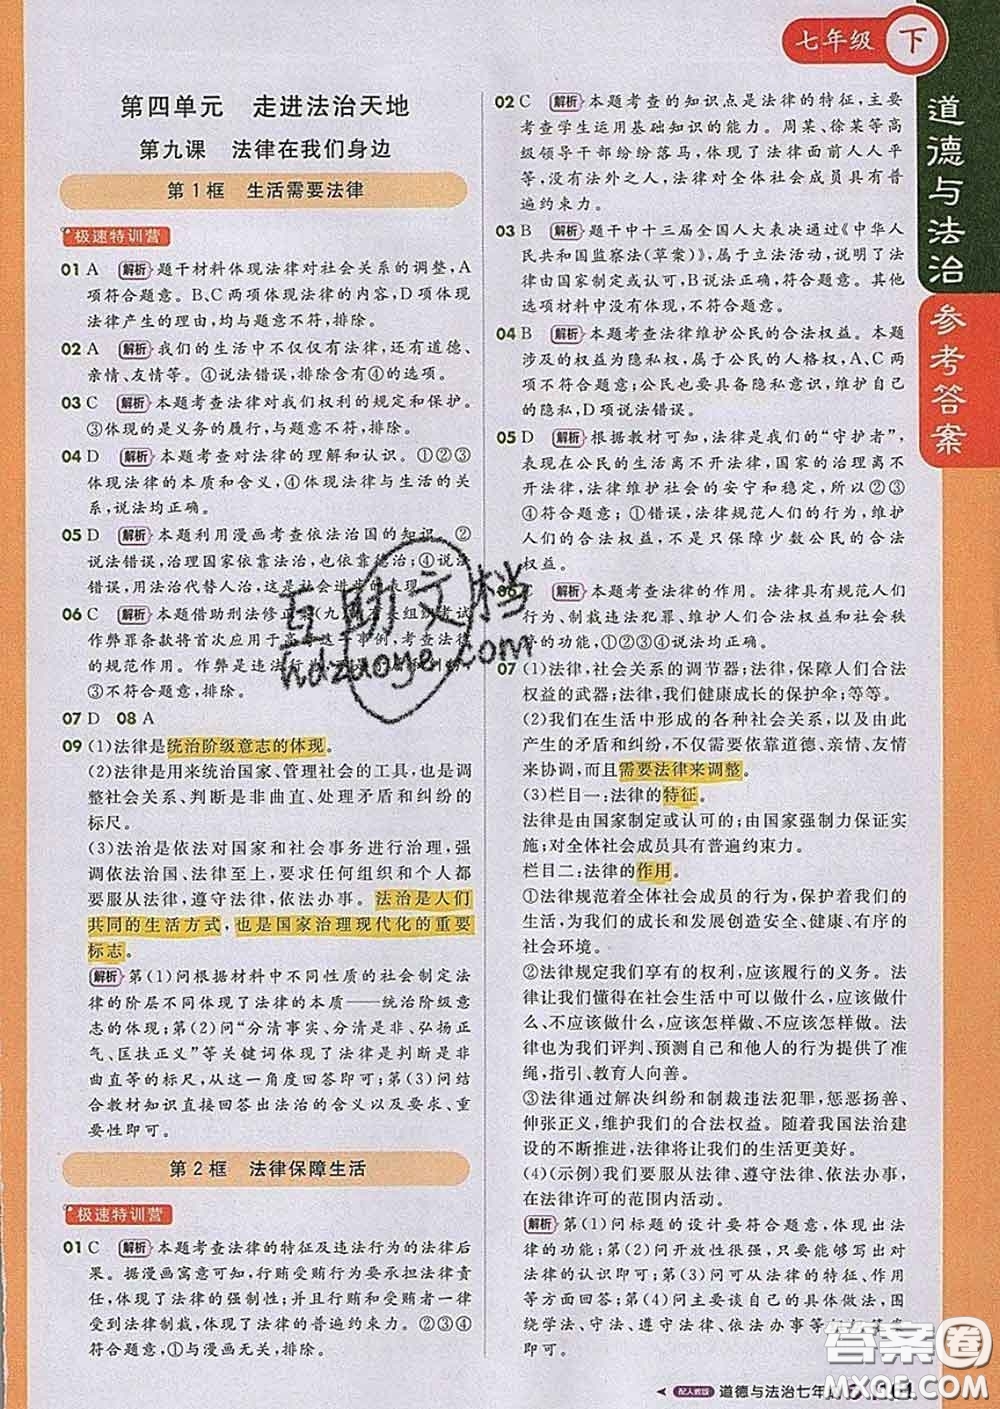 七年级 下
道德与法治
参考答案
第四单元 走进法治天地
第九课 法律在我们身边
第1框 生活需要法律
极速特训营
01 A 解析 题干材料体现法律对社会关系的调整,A
项符合题意。B、C两项体现法律的内容,D项体现
法律产生的理由,均与题意不符,排除。
02 A 解析 我们的生活中不仅仅有法律,还有道德、
亲情、友情等。④说法错误,排除含有④的选项。
03 C 解析 本题考查法律对我们权利的规定和保护。
③体现的是义务的履行,与题意不符,排除。
04 D 解析 本题考查对法律的理解和认识。①②③
体现法律的本质和含义,④体现法律与生活的关
系,说法均正确。
05 D 解析 本题利用漫画考查依法治国的知识。②
说法错误,治理国家依靠法治,也依靠德治;④说法
错误,用法治代替人治,这是社会进步的表现。
06 C 解析 本题借助刑法修正案(九)将有关组织考试
作弊罪条款将首次应用于高考这一事例,考查法律
的规范作用。作弊是违法行为
③不符合题意,排除。
07 D 08 A
09 (1)法律是统治阶级意志的体现。
(2)法律是用来统治国家、管理社会的工具,也是调
整社会关系、判断是非曲直、处理矛盾和纠纷的
标尺。
(3)法治是依法对国家和社会事务进行治理,强
调依法治国、法律至上,要求任何组织和个人都
要服从法律,遵守法律,依法办事。法治是人们
共同的生活方式,也是国家治理现代化的重要
标志。
解析 第(1)问根据材料中不同性质的社会制定法
律的阶层不同体现了法律的本质——统治阶级意
志的体现;第(2)问“分清事实、分清是非、弘扬正
气、匡扶正义”等关键词体现了法律是判断是非
曲直等的标尺,从这一角度回答即可;第(3)问结
合教材知识直接回答出法治的含义以及要求、重
要性即可。
第2框 法律保障生活
极速特训营
01 C 解析 本题考查法律的特征及违法行为的法律后
果。据漫画寓意可知,行贿受贿行为要承担法律责
任,体现了法律的强制性;并且行贿和受贿者一律
受到法律制裁,体现了法律的普遍约束力。②③④
符合题意,①与漫画无关,排除。
02 C 解析 本题考查的知识点是法律的特征,主要
考查学生运用基础知识的能力。周某、徐某等高
级领导干部纷纷落马,体现了法律面前人人平
等,没有法外之人,法律对全体社会成员具有普
遍约束力。
03 B 解析 题干中十三届全国人大表决通过《中华人
民共和国监察法(草案)》,属于立法活动,说明了法
律由国家制定或认可,B说法正确,符合题意。其他
选项材料中没有体现,不符合题意。
04 B 解析 本题考查法律维护公民的合法权益。本题
涉及的权益为隐私权,属于公民的人格权,A、C两
项说法错误;公民也要提高隐私意识,维护自己
的隐私,D项说法错误。
05 D 解析 根据教材可知,法律是我们的“守护者”,
表现在公民的生活离不开法律,国家的治理离不
开法律,法律维护社会的安宁和稳定,所以②③
④正确;①错误,法律规范人们的行为,保障人们
的合法权益,不是只保障少数公民的合法
权益。
06 C 解析 本题考查法律的作用。法律具有规范人们
行为、制裁违法犯罪、维护人们合法权益和社会秩
序的功能,①②③④说法均正确。
07 (1)法律,社会关系的调节器;法律,保障人们合法
权益的武器;法律,我们健康成长的保护伞;等等。
(2)我们在生活中形成的各种社会关系,以及由此
产生的矛盾和纠纷,不仅需要依靠道德、亲情、友情
来协调,而且需要法律来调整。
(3)栏目一:法律的特征。
法律是由国家制定或认可的;由国家强制力保证实
施;对全体社会成员具有普遍约束力。
栏目二:法律的作用。
①法律规范着全体社会成员的行为,保护着我们的
生活,为我们的成长和发展创造安全、健康、有序的
社会环境。
②法律规定我们享有的权利,应该履行的义务。法
律让我们懂得在社会生活中可以做什么,应该做什
么、不应该做什么,应该怎样做、不应该怎样做。法
律也为我们评判、预测自己和他人的行为提供了准
绳,指引、教育人向善。
③法律通过解决纠纷和制裁违法犯罪,惩恶扬善、
伸张正义,维护我们的合法权益。随着我国法治建
设的不断推进,法律将让我们的生活更美好。
(4)(示例)我们要服从法律、遵守法律、依法办事,
在法律许可的范围内活动。
解析 第(1)问标题的设计要符合题意,体现出法
律的功能;第(2)问开放性很强,只要写出自己对
法律的认识即可;第(3)问可从法律的特征、作用
等方面去介绍;第(4)问主要谈自己的具体做法,围
绕学法、守法、遵守法律、依法办事等方面作答
即可。
互助文档
hdzuoye.com
答案圈
MXQE.COM
配人教版 道德与法治七年